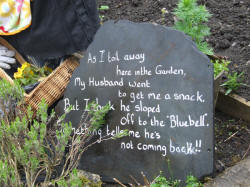 As I toil away
here in the Garden,
My Husband went
to get me a snack.
But I think he's sloped
off to the "Bluebell".
getting tells me he's
not coming back!!